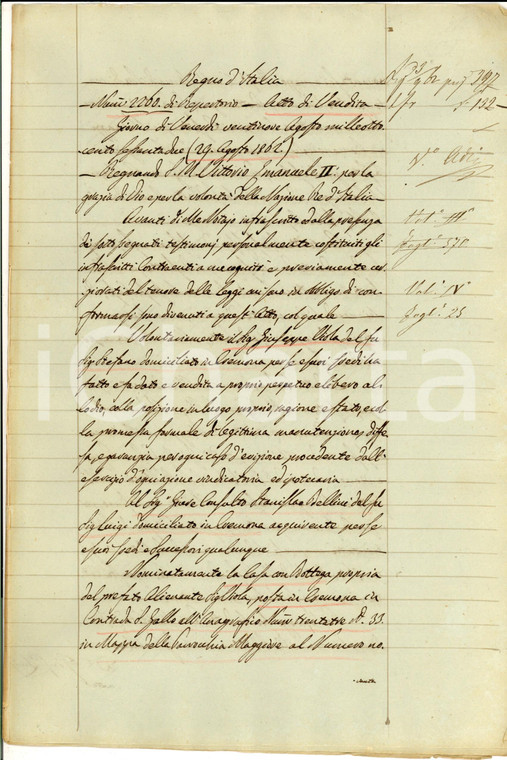 Regno d'Italia
Num° 2260. di Repertorio - Atto di Vendita
Giorno di Venerdì ventinove Agosto milleotto
cento sessantadue (29. Agosto 1862)
Regnando S. M. Vittorio Emanuele II: per la
grazia di Dio e per la volontà della Nazione Re d'Italia
Avanti di Me Notajo infrascritto e dalla presenza
dei sotto segnati testimonj personalmente costituiti gli
infrascritti Contraenti a me cogniti e previamente
del tenore delle leggi in obbligo di con
formarsi sono divenuti a quest'Atto, col quale
Volontariamente il Sig. Giuseppe Viola del fu
Sig. Stefano domiciliato in Cremona per se e suoi Eredi ha
fatto e fa dato e vendita a proprio perpetuo e libero al
lodio, colla possessione in luogo, proprio, ragione e stato, e col
la promessa formale di legittima manutenzione, dife
sa, e garanzia per ogni caso d'evizione procedente dall'
esercizio d'ogni azione vindicatoria ed ipotecaria
Al Sig. Giure Consulto Stanislao Bellini del fu
Sig. Luigi domiciliato in Cremona acquirente per se
e suoi Eredi e Successori qualunque
Nominatamente la Casa con Bottega, propria
del prefato Alienante Sig. Viola, posta in Cremona in
Contrada S. Gallo all'Anagrafico Num° trentatre N°. 33.
in Mappa della Parrocchia Maggiore al Numero no.
132
N°
N°
25
iCharta